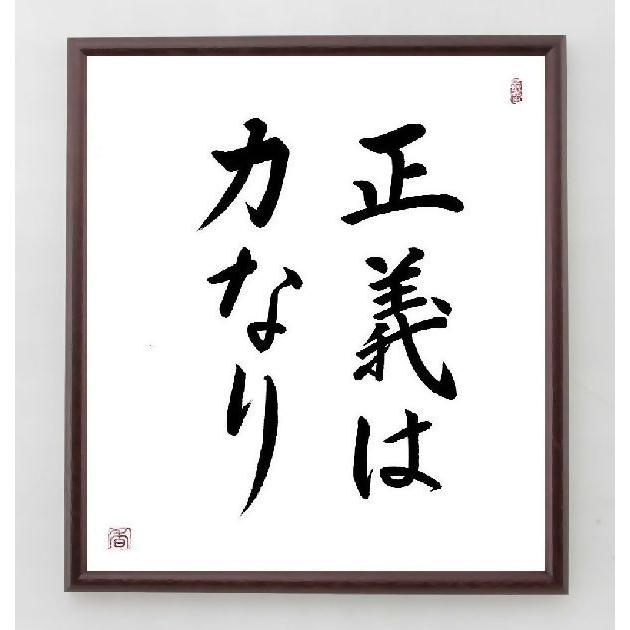 正義は
力なり